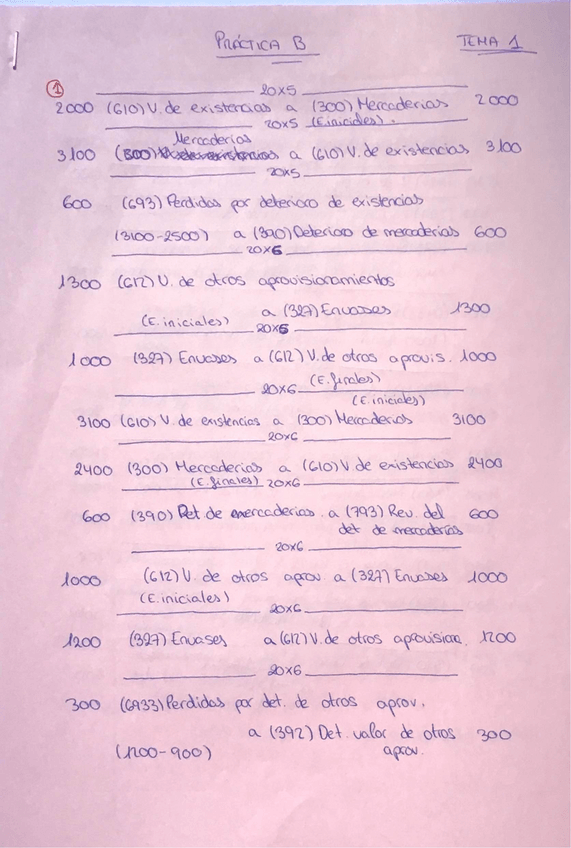 PRÁCTICA B TEMA 1
1
20x5
2000 (610) V. de existencias a (300) Mercaderías 2000
20x5 (E.iniciales).
Mercaderías
3100 (300) a (610) V. de existencias 3100
20x5
600 (693) Pérdidas por deterioro de existencias
(3100-2500) a (390) Deterioro de mercaderías 600
20x6
1300 (612) V. de otros aprovisionamientos
a (327) Envases 1300
(E. iniciales)
20x6
1000 (327) Envases a (612) V. de otros aprovis. 1000
20x6 (E. finales)
(E. iniciales)
3100 (610) V. de existencias a (300) Mercaderías 3100
20x6
2400 (300) Mercaderías a (610) V de existencias 2400
(E. finales) 20x6
600 (390) Det. de mercaderías a (793) Rev. del 600
det de mercaderías
20x6
1000 (612) V. de otros aprov a (327) Envases 1000
(E. iniciales)
20x6
1200 (327) Envases a (612) V. de otros aprovision. 1200
20x6
300 (6933) Pérdidas por det. de otros aprov.
a (392) Det. valor de otros 300
(1200-900) aprov.